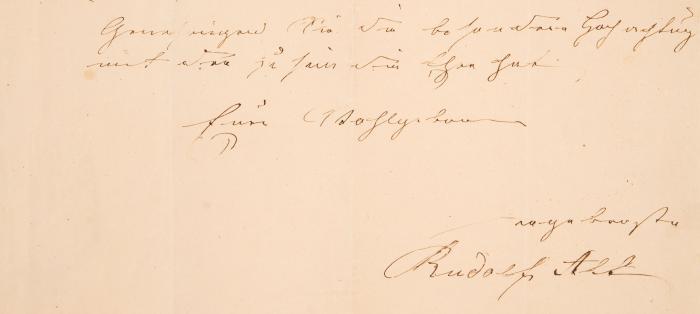 Genehmigen Sie die besondere Hochachtung
mit der zu sein die Ehre hat
Euer Wohlgeboren
ergebenster
Rudolf Alt